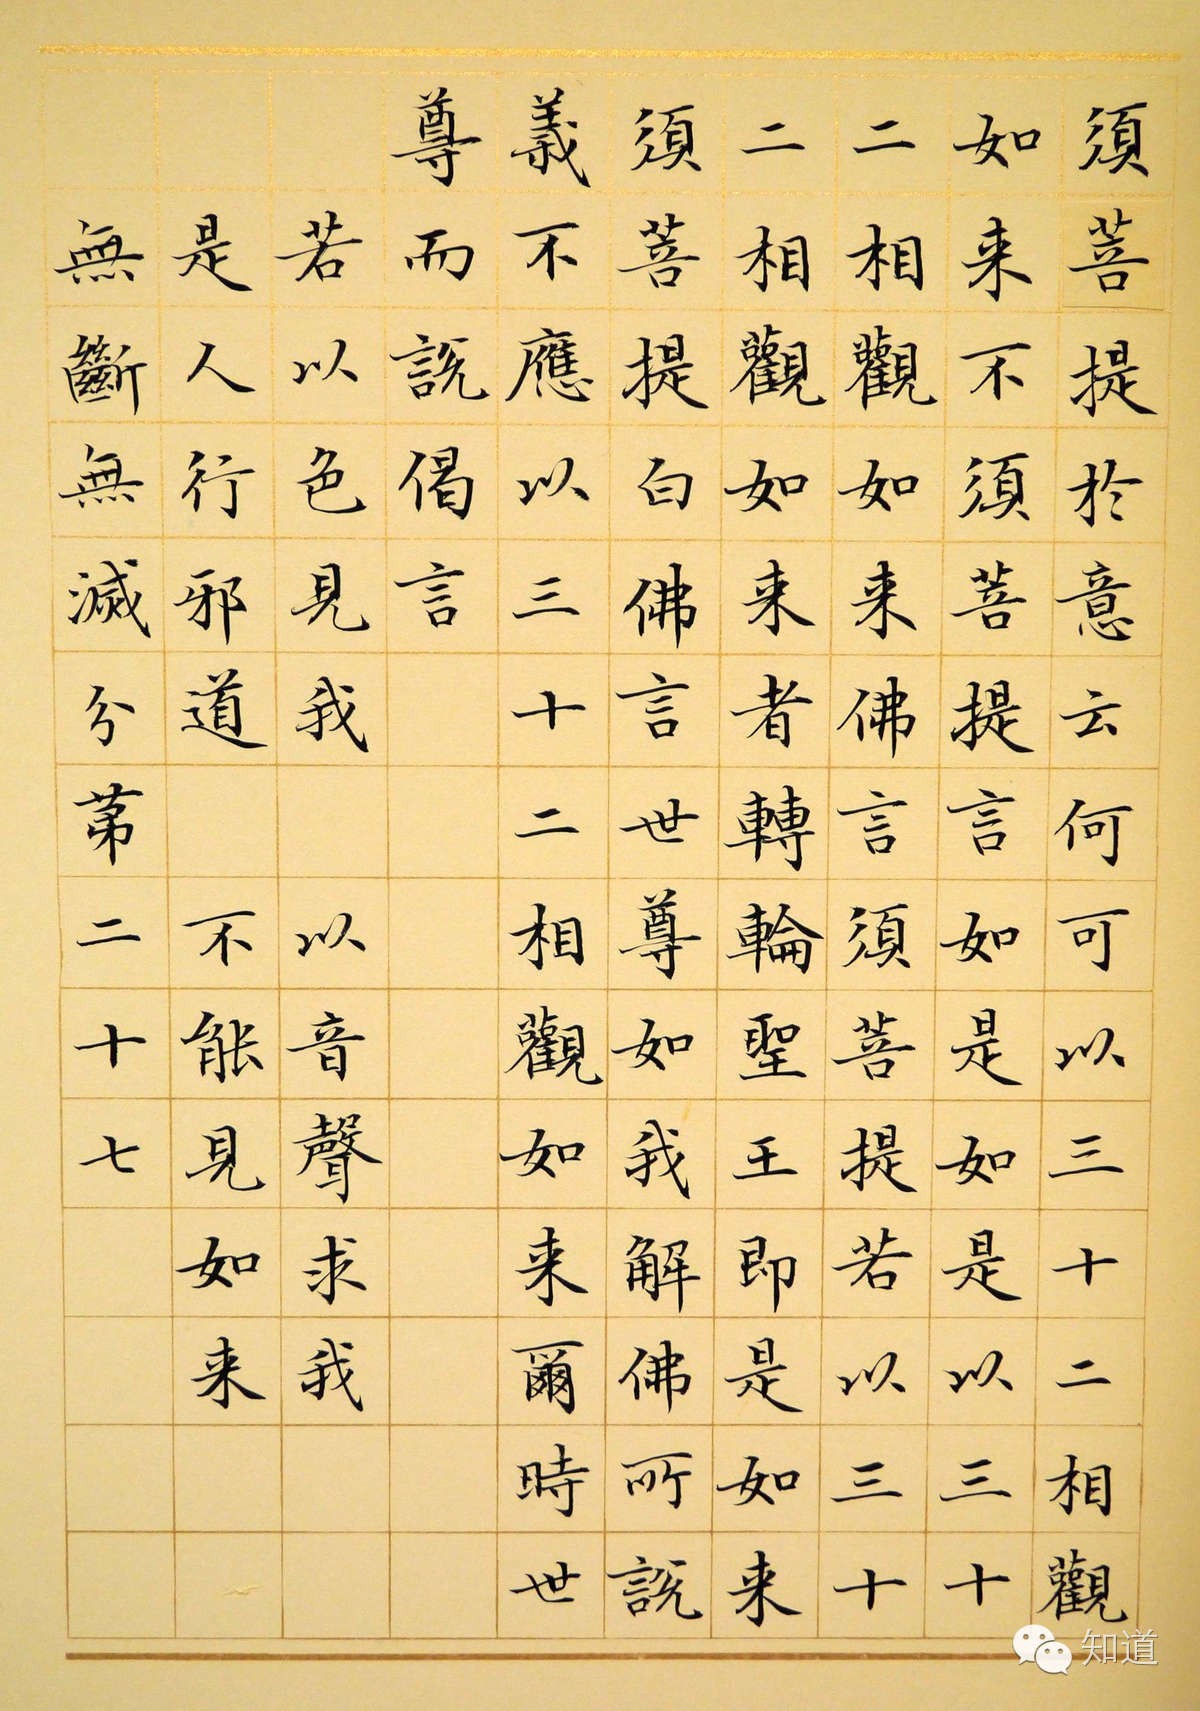 須菩提於意云何可以三十二相觀
如来不須菩提言如是如是以三十
二相觀如来佛言須菩提若以三十
二相觀如来者轉輪聖王即是如来
須菩提白佛言世尊如我解佛所說
義不應以三十二相觀如来爾時世
尊而說偈言
若以色見我 以音聲求我
是人行邪道 不能見如来
無斷無滅分第二十七
知道